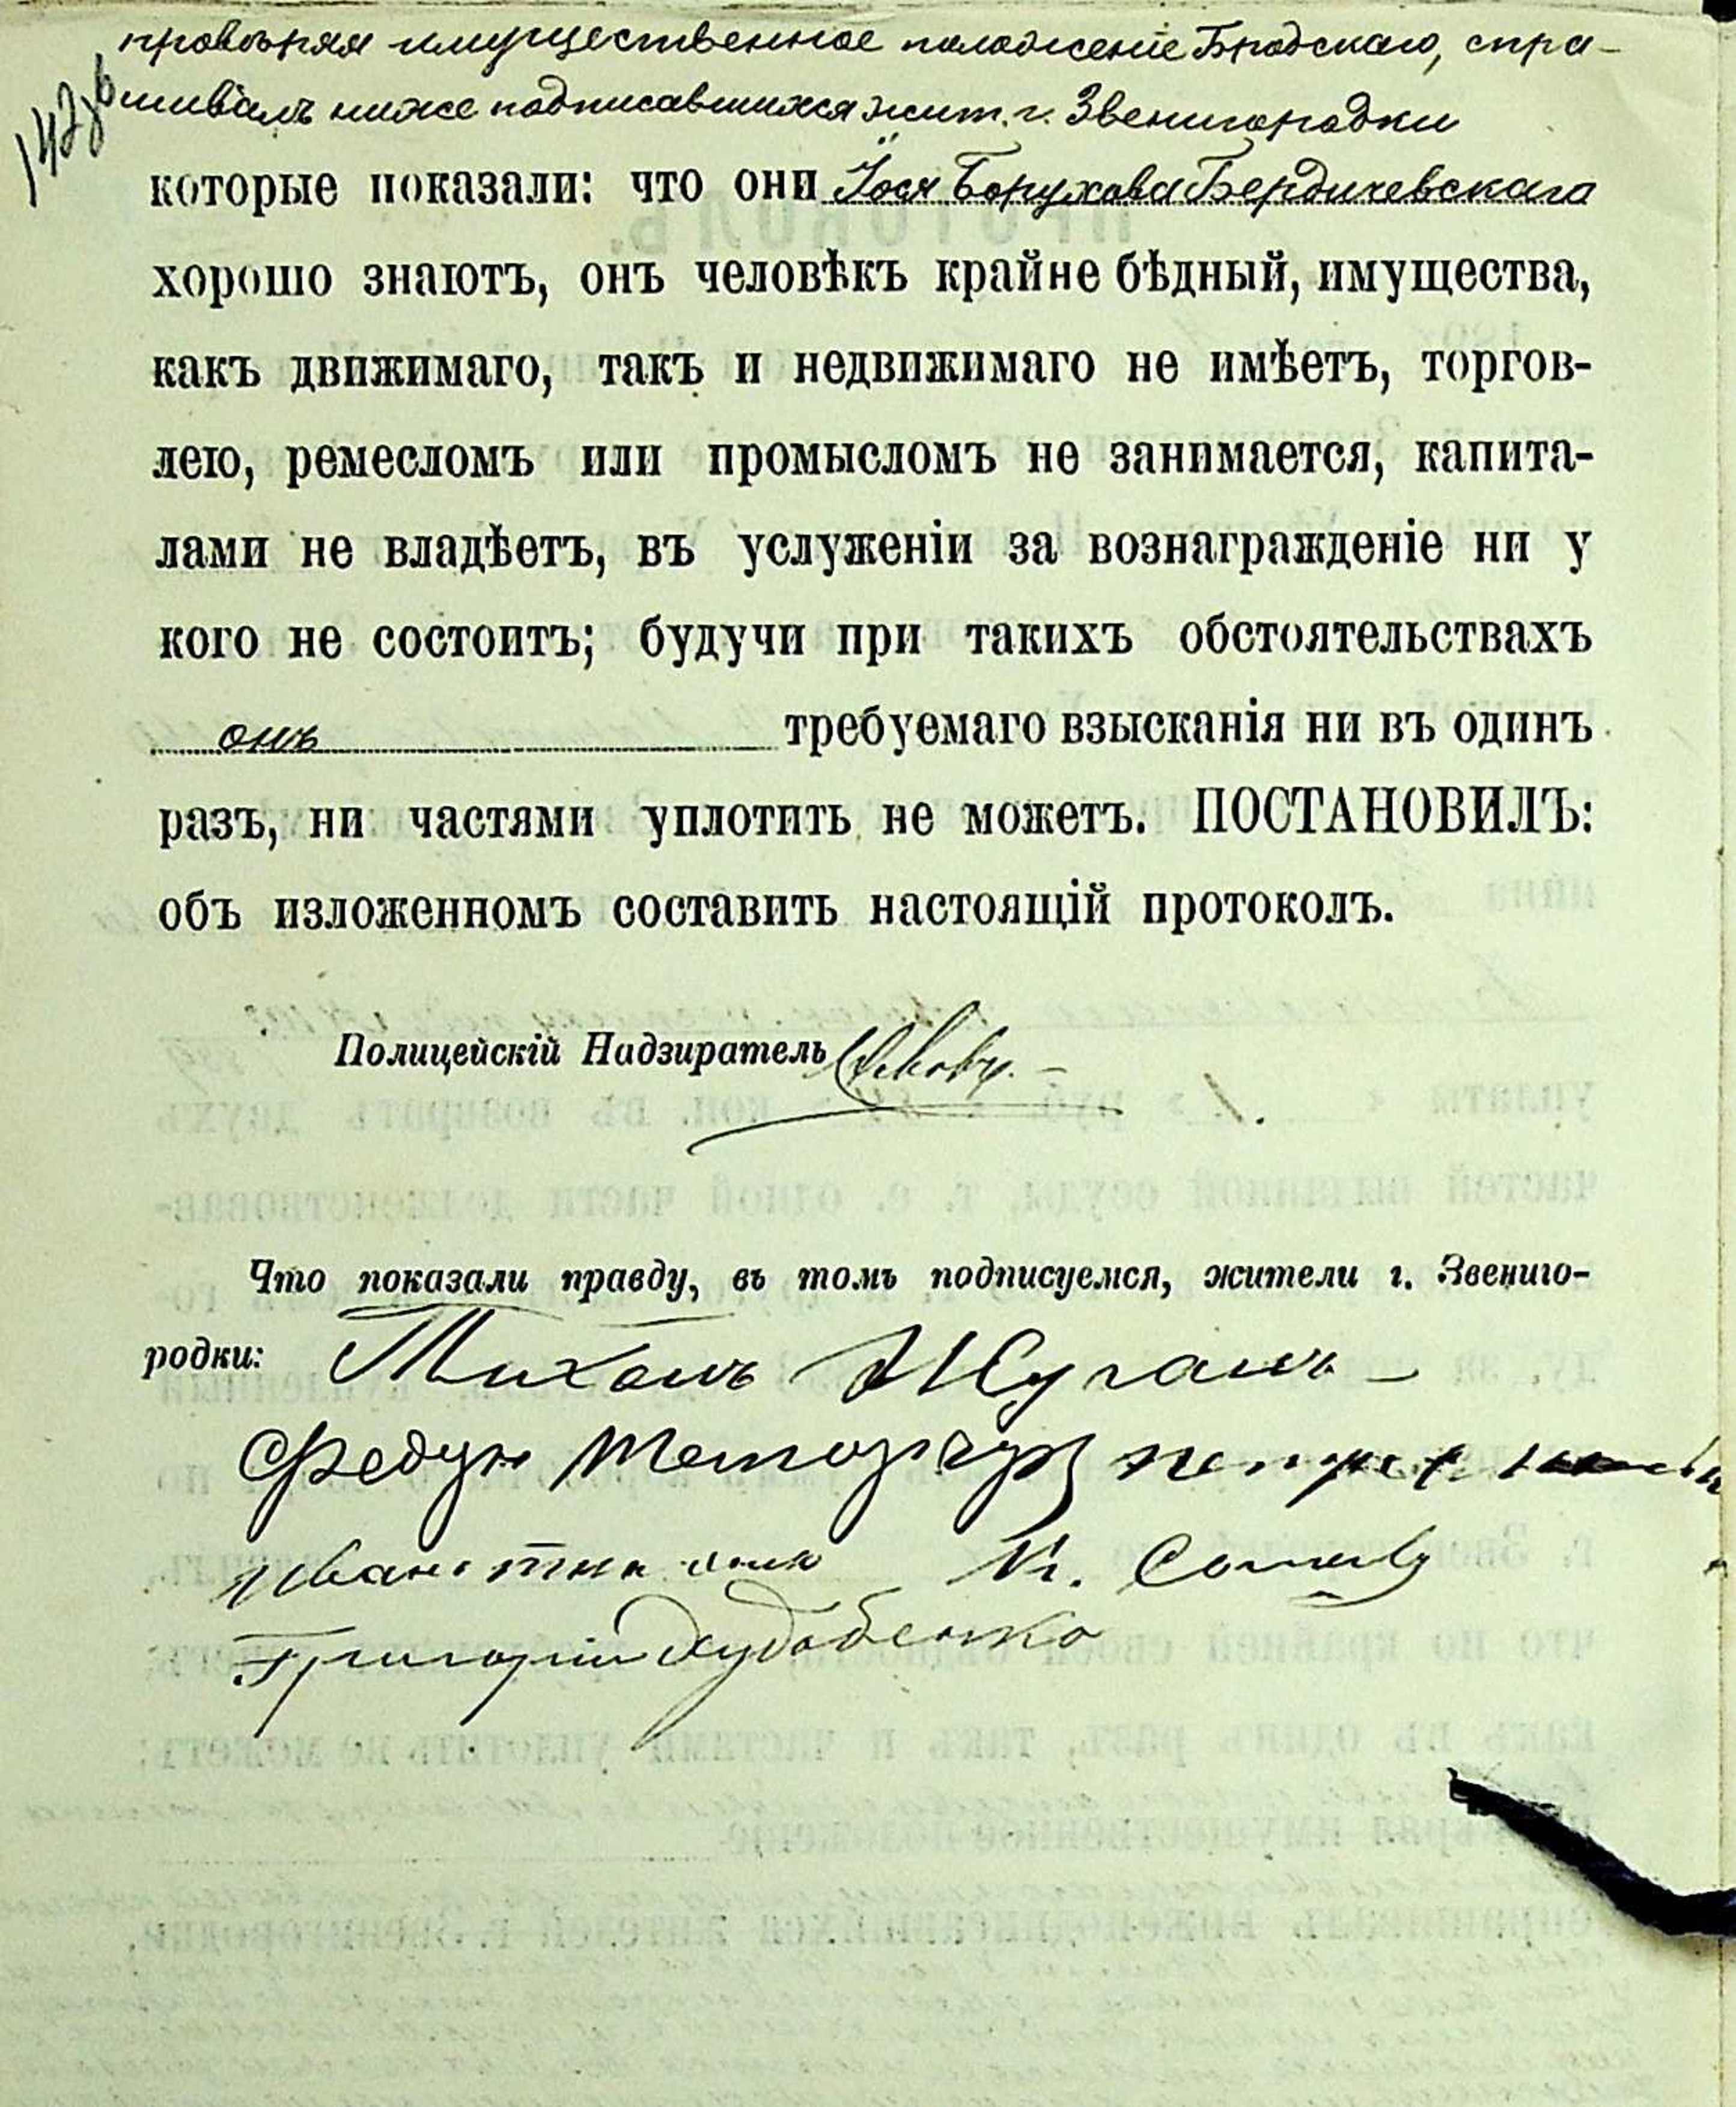 провѣряя имущественное положеніе Бродскаго, спра-
шивалъ ниже подписавшихся жит. г. Звенигородки
которые показали: что они Іося Борухова Бердичевскаго
хорошо знаютъ, онъ человѣкъ крайне бѣдный, имущества,
какъ движимаго, такъ и недвижимаго не имѣетъ, торгов-
лею, ремесломъ или промысломъ не занимается, капита-
лами не владѣетъ, въ услуженіи за вознагражденіе ни у
кого не состоитъ; будучи при такихъ обстоятельствахъ
онъ требуемаго взысканія ни въ одинъ
разъ, ни частями уплотить не можетъ. ПОСТАНОВИЛЪ:
объ изложенномъ составить настоящій протоколъ.
Полицейскій Надзиратель
Что показали правду, въ томъ подписуемся, жители г. Звениго-
родки: Тихонъ
Григорій Худобенко